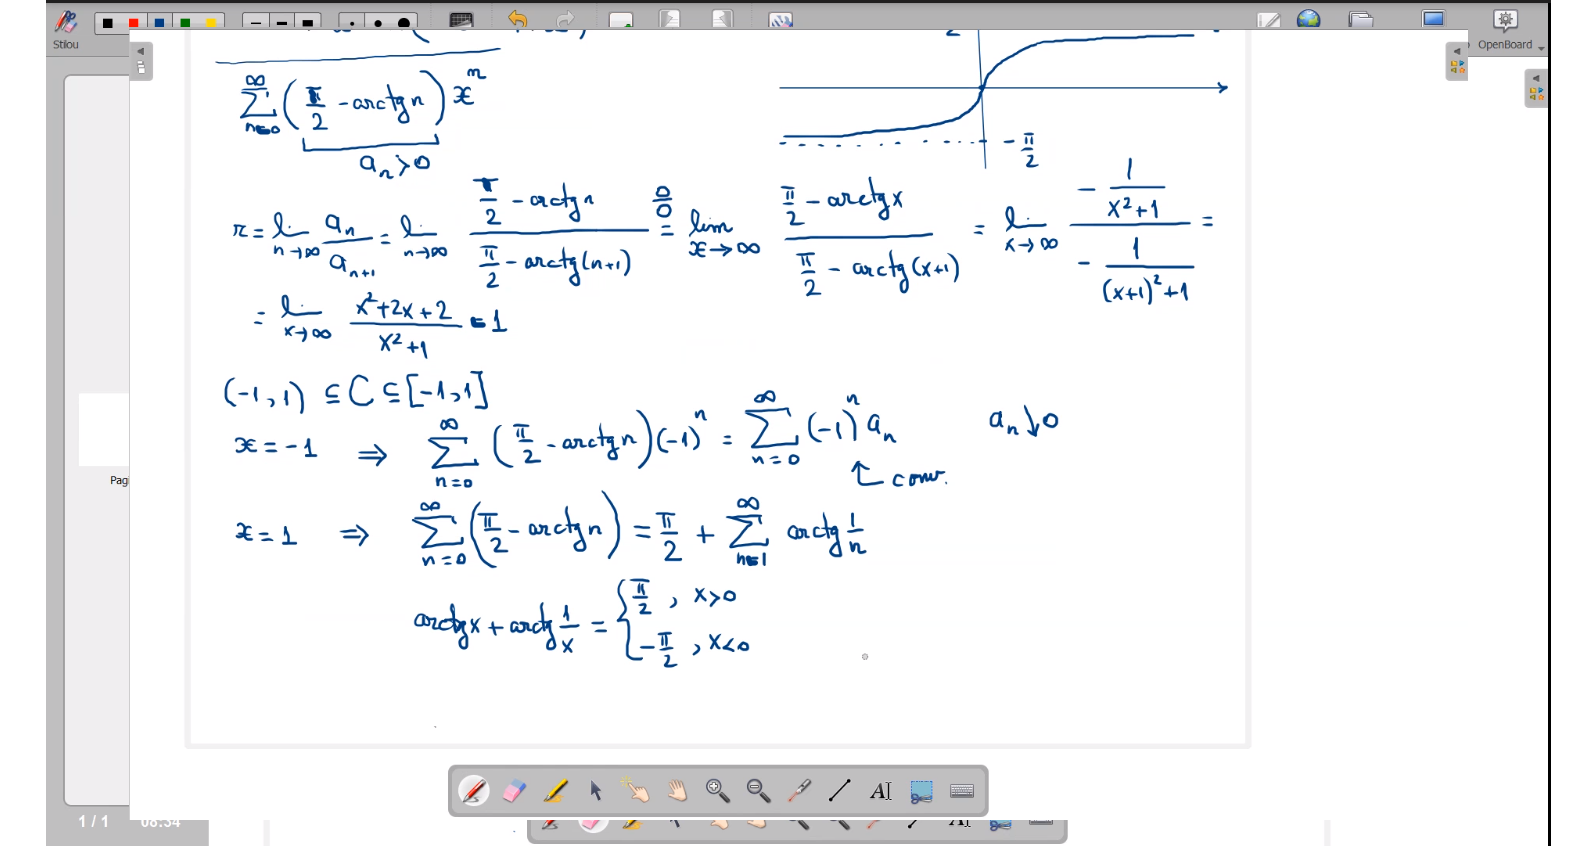 Stilou
OpenBoard
\sum_{n=0}^{\infty} (π/2 - arctg n) x^n
a_n > 0
- π/2
r = lim_{n→∞} a_n / a_{n+1} = lim_{n→∞} (π/2 - arctg n) / (π/2 - arctg(n+1)) =^{0/0} lim_{x→∞} (π/2 - arctg x) / (π/2 - arctg(x+1)) = lim_{x→∞} (- 1/(x²+1)) / (- 1/((x+1)²+1)) =
= lim_{x→∞} (x²+2x+2) / (x²+1) = 1
(-1,1) ⊆ C ⊆ [-1,1]
x = -1 ⇒ \sum_{n=0}^{\infty} (π/2 - arctg n)(-1)^n = \sum_{n=0}^{\infty} (-1)^n a_n a_n ↓ 0
conv.
x = 1 ⇒ \sum_{n=0}^{\infty} (π/2 - arctg n) = π/2 + \sum_{n=1}^{\infty} arctg 1/n
arctg x + arctg 1/x = { π/2 , x>0
-π/2 , x<0
Pag
1 / 1